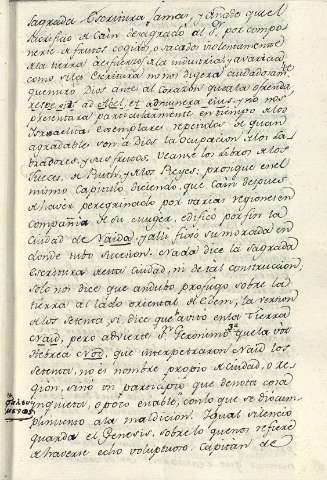 Sagrada Escritura jamas, y añade que el
Sacrificio de Cain desagradó al S.r por compo
nerse de frutos cogidos, o sacados violentamente
de la tierra a esfuerzo de la industria, y avaricia,
como si la Escritura no nos digera cuidadosam.te
que miró Dios antes al corazon que a la ofrenda
respexit ad Abel, et ad munera eius, y no nos
presentara particularmente en tiempo de los
Israelitas exemplares repetidos de quan
agradable son a Dios la ocupacion de los la
bradores, y sus frutos. Veanse los libros de los
Jueces, de Ruth, y de los Reyes: prosigue en el
mismo Capitulo diciendo, que Cain despues
de haver peregrinado por varias regiones en
compañia de su muger, edificó por fin la
Ciudad de Naida, y alli fixó su morada en
donde tubo sucesion. Nada dice la Sagrada
Escritura de esta Ciudad, ni de tal construccion,
solo nos dice que anduvo profugo sobre la
tierra al lado oriental de Eden, la version
de los setenta, si dice que avitó en la tierra
Naid, pero advierte S.n Geronimo que la voz
Hebrea Nod, que interpretaron Naid los
setenta, no es nombre propio de Ciudad, o re
gion, sino un participio que denota cosa
inquieta, o poco estable, con lo que se dió cum
plimiento a la maldicion. Igual silencio
guarda el Genesis, sobre lo que nos refiere
de haverse echo voluptuoso, Capitan de